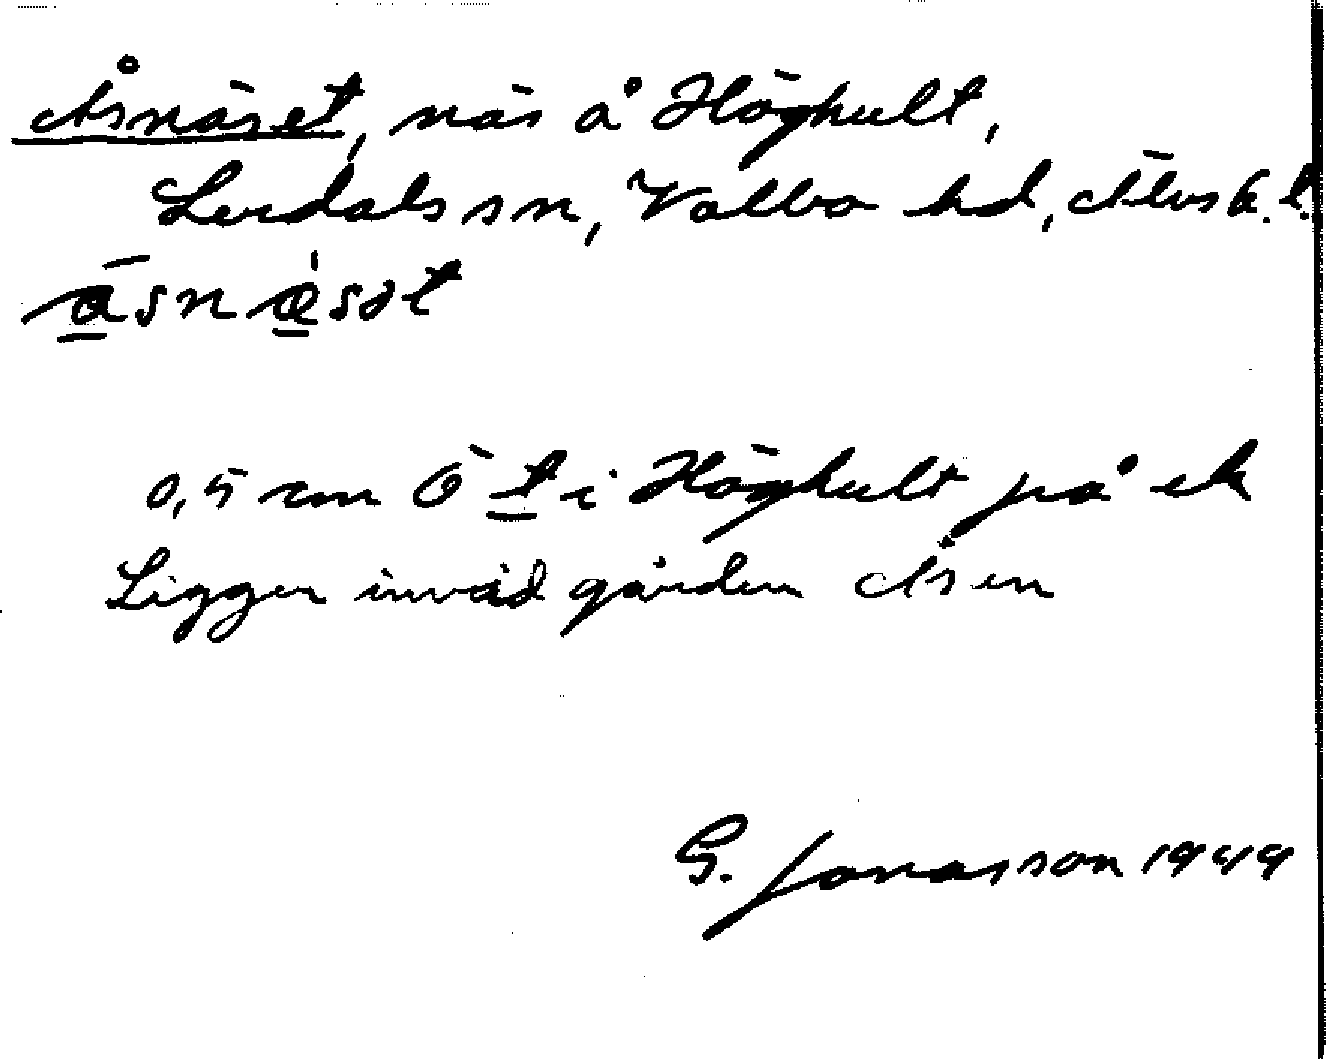 Åsnäset, näs å Höghult,
Lerdals sn, Valbo hd, Älvsb. l.
åsnæsət
0,5 cm Ö t i Höghult på ek
Ligger invid gården Åsen
G. Jonasson 1949